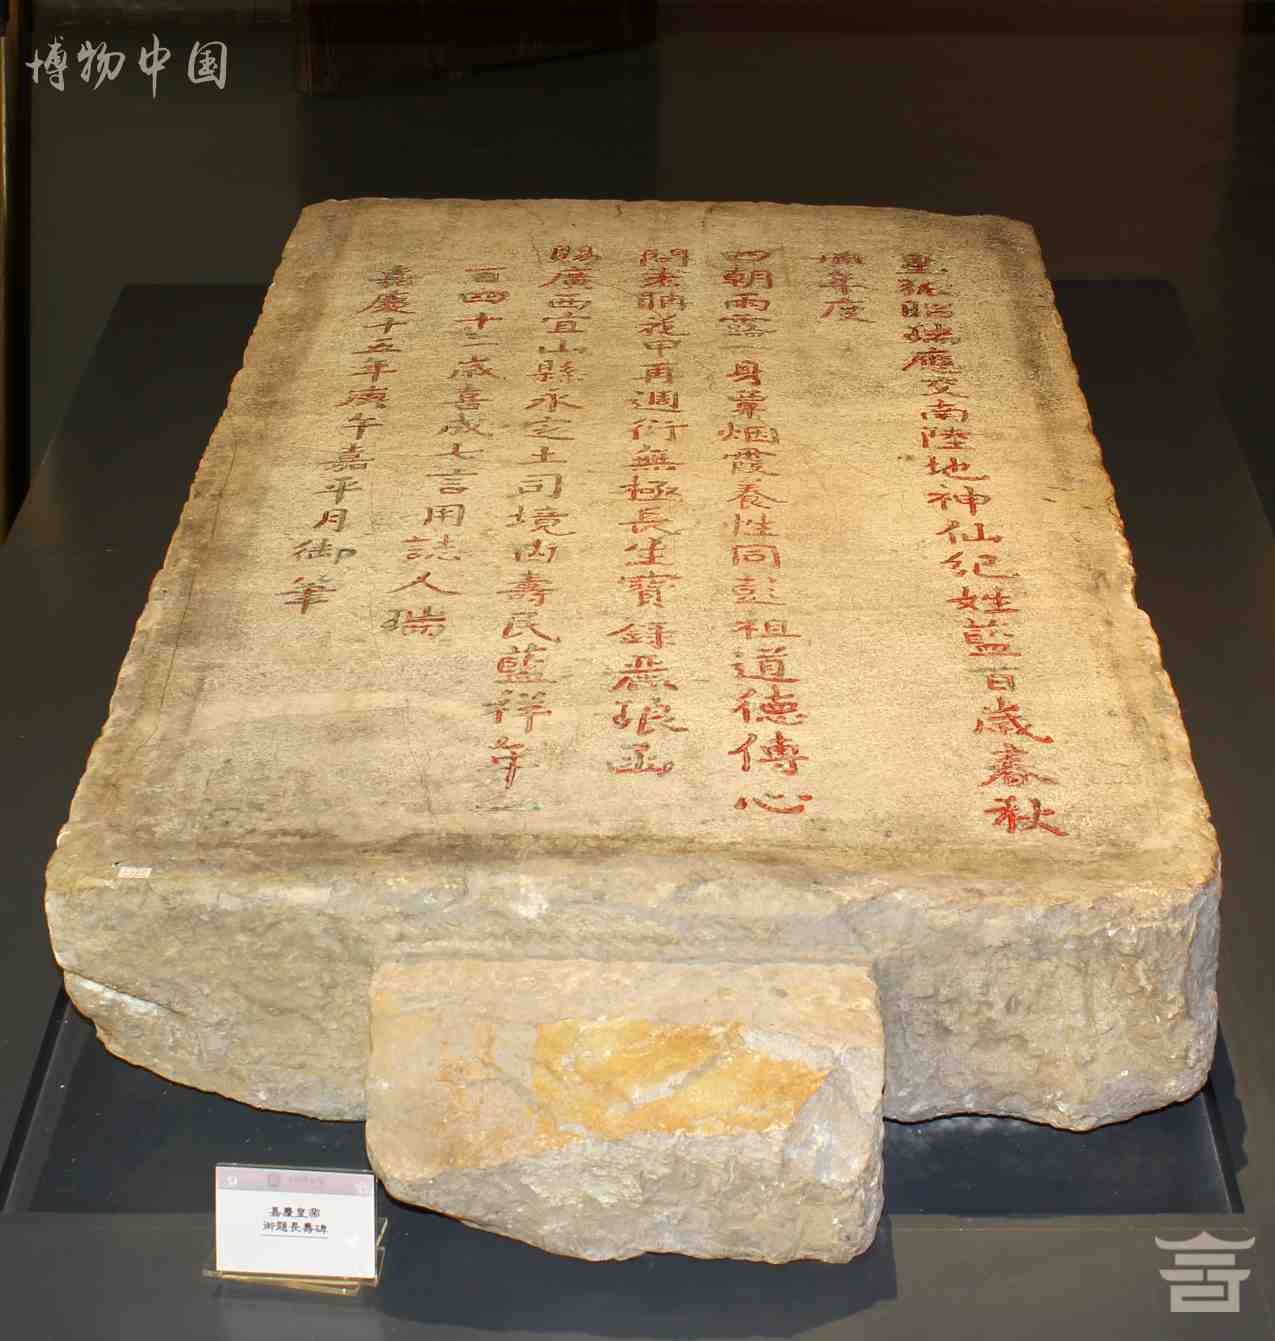 博物中国
星弧昭瑞應交南陸地神仙紀姓藍百歲春秋
卌年度
四朝雨露一身覃烟霞養性同彭祖道德傳心
問老聃花甲再週衍無極長生寶錄麗琅函
賜廣西宜山縣永定土司境內壽民藍祥年一
百四十二歲喜成七言用誌人瑞
嘉慶十五年庚午嘉平月御筆
嘉慶皇帝
御題長壽碑